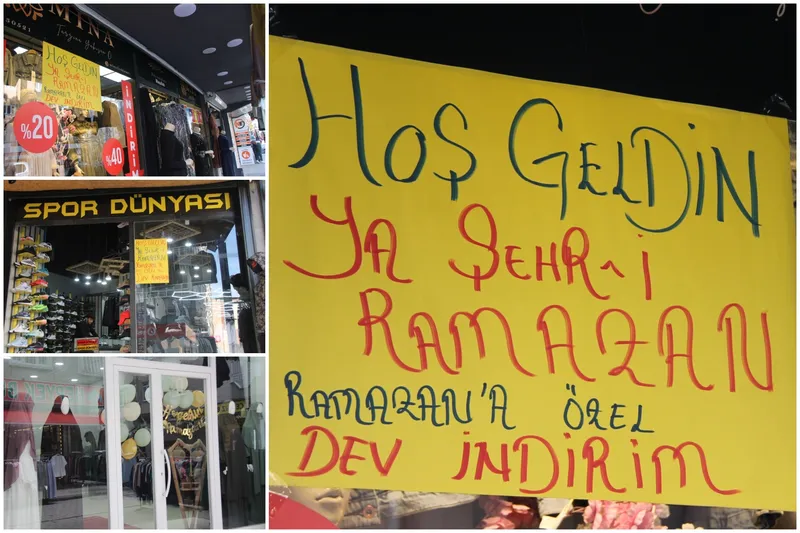 MİNA
HOŞ GELDİN
YA ŞEHR-İ
RAMAZAN
RAMAZAN'A ÖZEL
DEV İNDİRİM
%20
%40
İNDİRİM
SPOR DÜNYASI
HOŞ GELDİN
YA ŞEHR-İ
RAMAZAN
RAMAZAN'A ÖZEL
DEV İNDİRİM